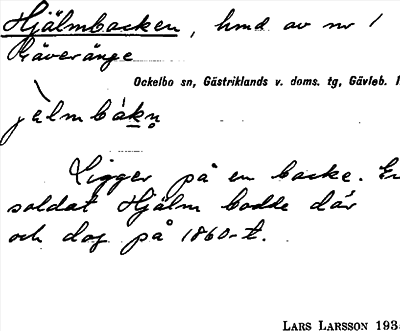 Hjälmbacken, hmd av nr 1
Räveränge
Ockelbo sn, Gästriklands v. doms. tg, Gävleb. l
jèlmbákn̥
Ligger på en backe. En
soldat Hjälm bodde där
och dog på 1860-t.
LARS LARSSON 193